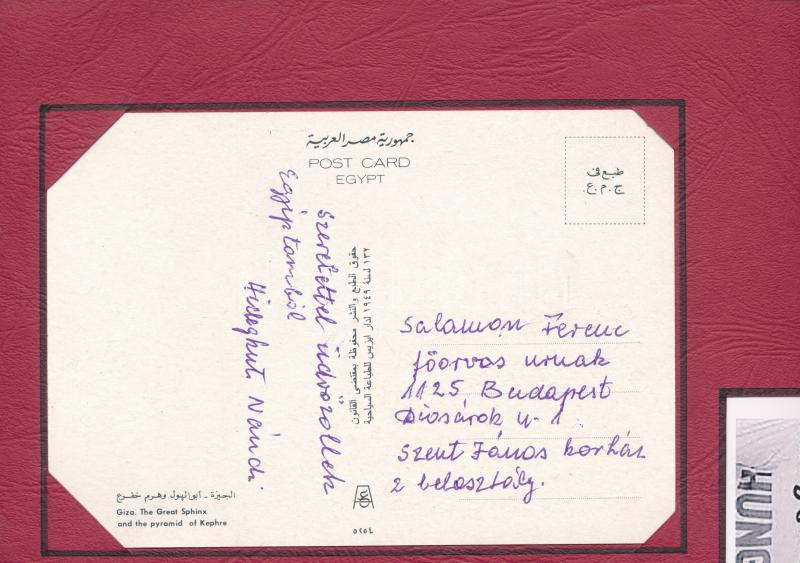 جمهورية مصر العربية
POST CARD
EGYPT
طبع في
ج.م.ع.
Szeretettel üdvözöllek
Egyiptomból
Hidegkuti Nándi
حقوق الطبع والنشر محفوظة بمقتضى القانون
١٣٢ لسنة ١٩٤٩ لدار ايزيس للطباعة السياحية
Salamon Ferenc
főorvos urnak
1125 Budapest
Diósárok u. 1
Szent János korház
2 belosztály.
الجيزة - أبو الهول وهرم خفرع
Giza. The Great Sphinx
and the pyramid of Kephre
HUNG